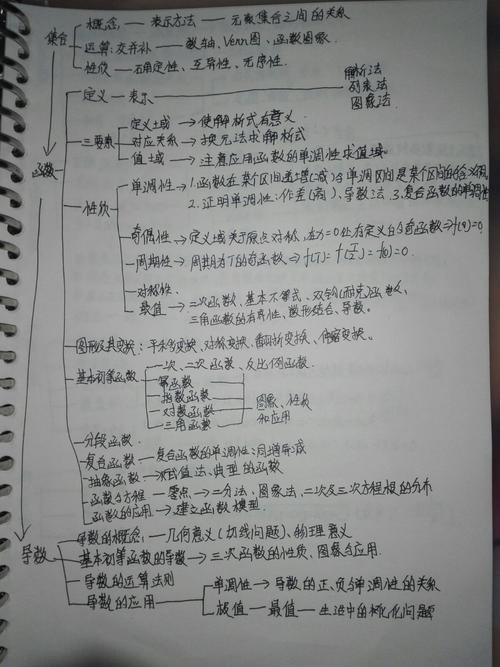 集合
概念 — 表示方法 — 元素集合之间的关系
运算:交并补 — 数轴、Venn图、函数图象.
性质 — 确定性、互异性、无序性.
函数
定义 — 表示
解析法
列表法
图象法
三要素
定义域 → 使解析式有意义
对应关系 → 换元法求解析式
值域 → 注意应用函数的单调性求值域.
性质
单调性 → 1.函数在某个区间递增(减)与单调区间是某个区间的含义
2.证明单调性:作差(商)、导数法 3.复合函数的单调性
奇偶性 → 定义域关于原点对称,在x=0处有定义的奇函数→f(0)=0
周期性 → 周期为T的奇函数→f(T)=f(T/2)=f(0)=0.
对称性.
最值 → 二次函数、基本不等式、双钩(耐克)函数、
三角函数的有界性、数形结合、导数。
图形及其变换:平移变换、对称变换、翻折变换、伸缩变换。
基本初等函数
一次、二次函数、反比例函数.
幂函数
指数函数
对数函数
三角函数
图象、性质
和应用
分段函数.
复合函数 — 复合函数的单调性:同增异减
抽象函数 → 赋值法、典型的函数
函数与方程 — 零点 → 二分法、图象法、二次及三次方程根的分布
函数的应用 → 建立函数模型
导数
导数的概念 — 几何意义(切线问题)、物理意义
基本初等函数的导数 → 三次函数的性质、图象与应用.
导数的运算法则
导数的应用
单调性 → 导数的正负与单调性的关系
极值 — 最值 — 生活中的优化问题